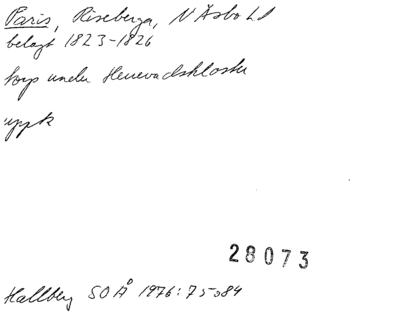 Paris, Riseberga, N Åsbo Ld
belagt 1823-1826
torp under Herrevadskloster
uppk
28073
Hallberg SOÅ 1976:75 o 84